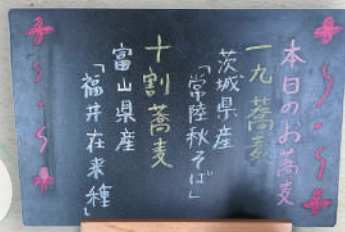 本日のお蕎麦
一九蕎麦
茨城県産
「常陸秋そば」
十割蕎麦
富山県産
「福井在来種」